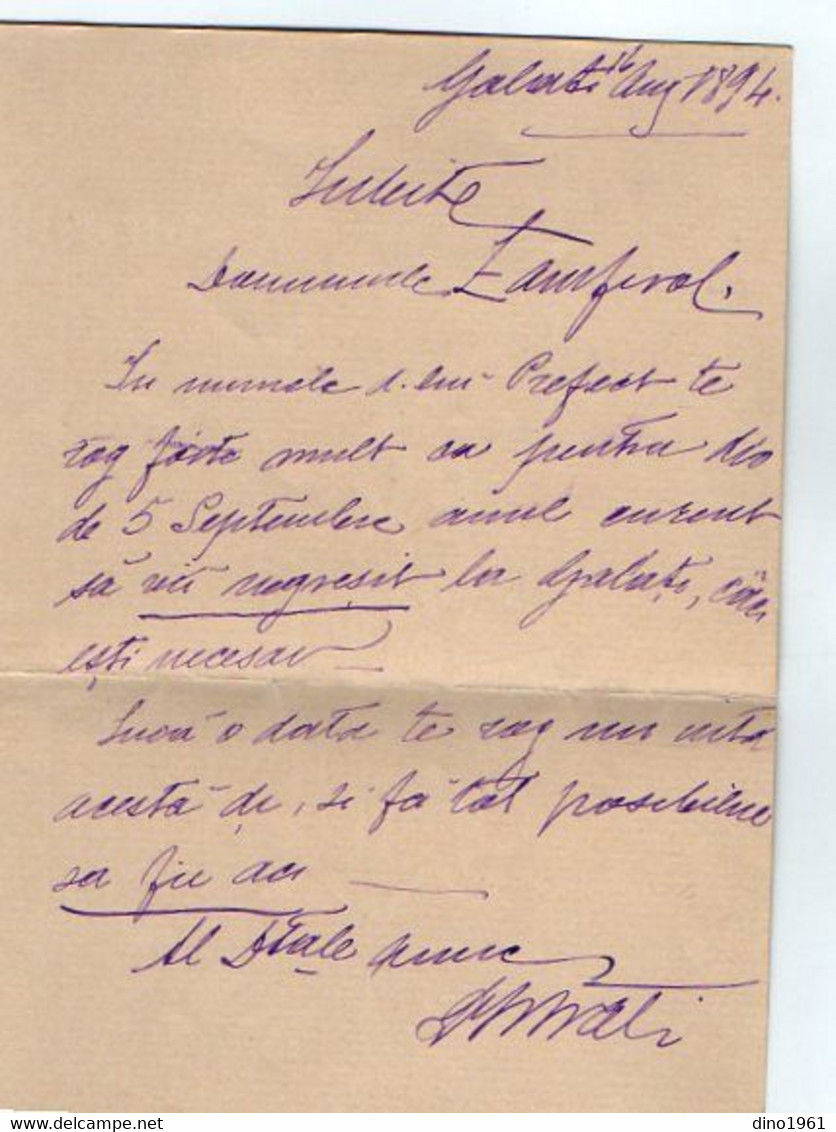 Galați 16 Aug 1894.
Iubite
Domnule Zamfirol.
In numele d-lui Prefect te
rog fórte mult ca pentru dio
de 5 Septembre anul curent
să vii negreșit la Galați, căci
ești necesar —
Incă o data te rog nu uita
acestă di, si fă tot posibilul
sa fii aci —
Al Dtale amic
dino1961